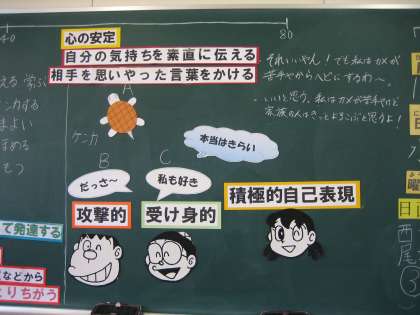 40
80
心の安定
自分の気持ちを素直に伝える
相手を思いやった言葉をかける
それいいやん!でも私はカメが
苦手やからヘビにするわ〜。
いいと思う、私はカメが苦手やけど
家族の人はきっとよろこぶと思うよ!
A
ケンカ
本当はきらい
B
C
だっさ〜
私も好き
攻撃的
受け身的
積極的自己表現
て発達する
などから
とりちがう
える 学ぶ
まよい
める
もつ
曜
日直
西尾